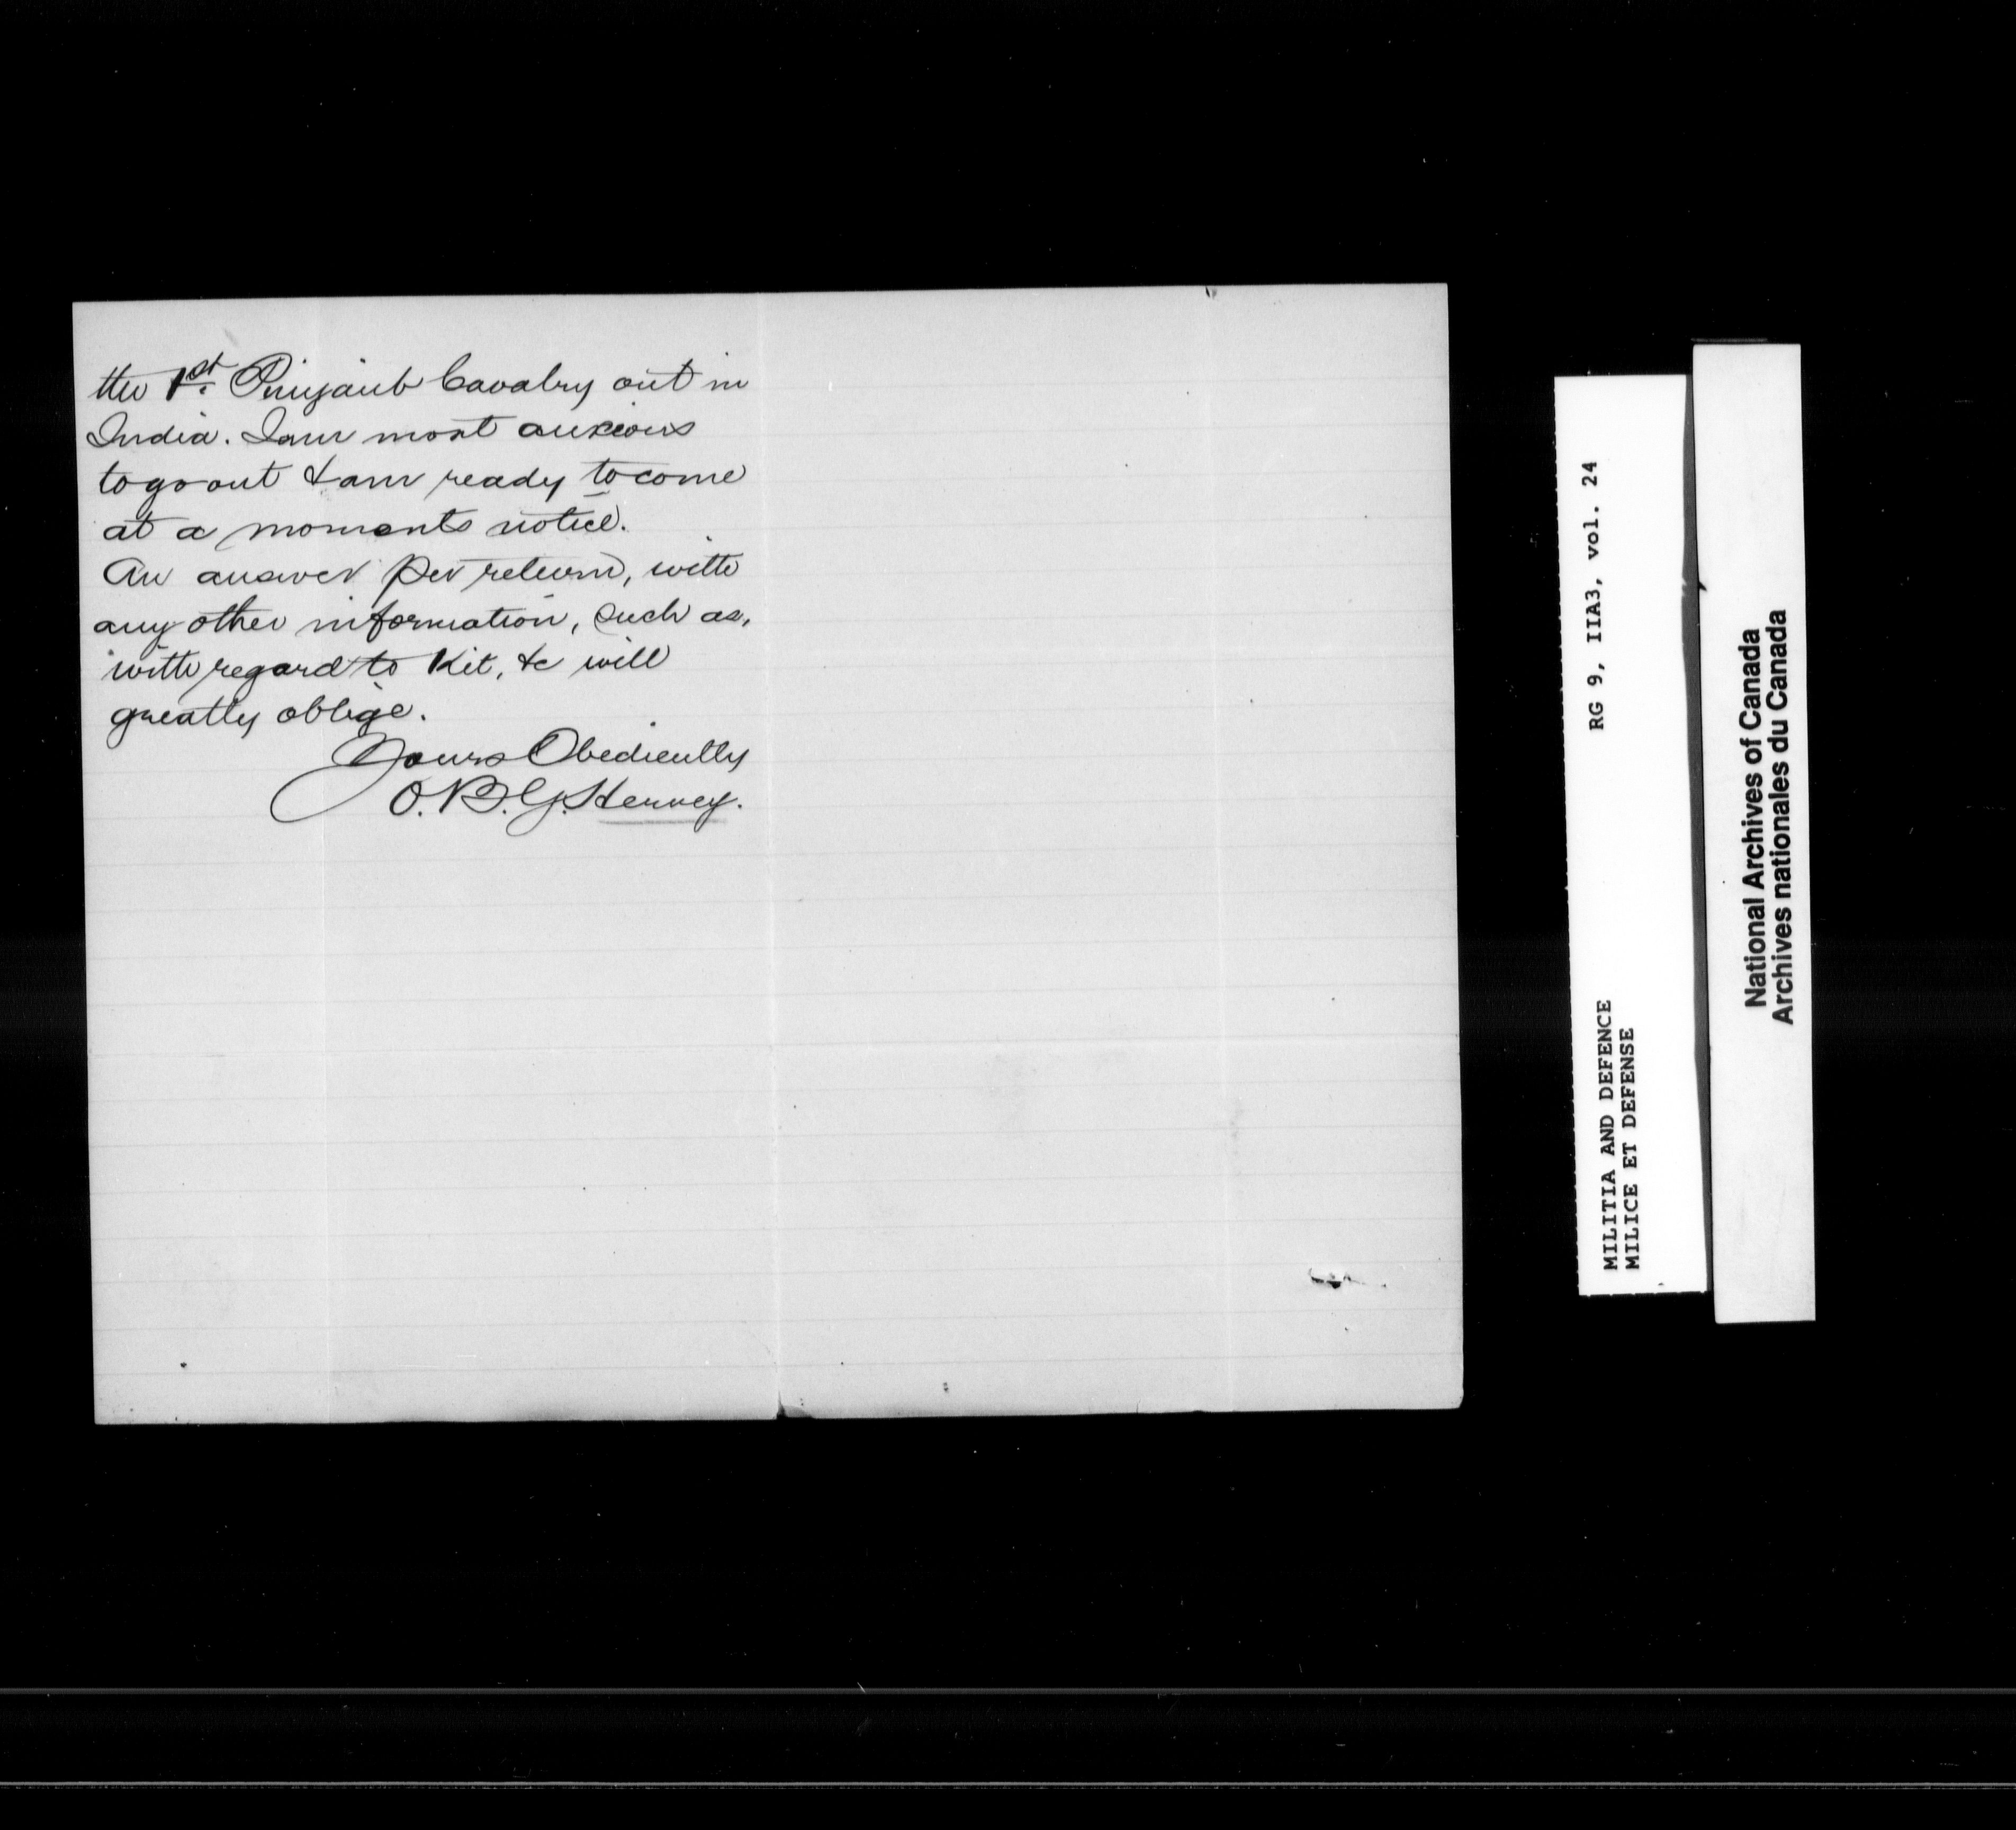 the 1st. Punjaub Cavalry out in
India. I am most anxious
to go out & am ready to come
at a moments notice.
An answer per return, with
any other information, such as,
with regard to Kit, &c will
greatly oblige.
Yours Obediently
O. B. G. Hervey.
RG 9, IIA3, vol. 24
MILITIA AND DEFENCE
MILICE ET DEFENSE
National Archives of Canada
Archives nationales du Canada